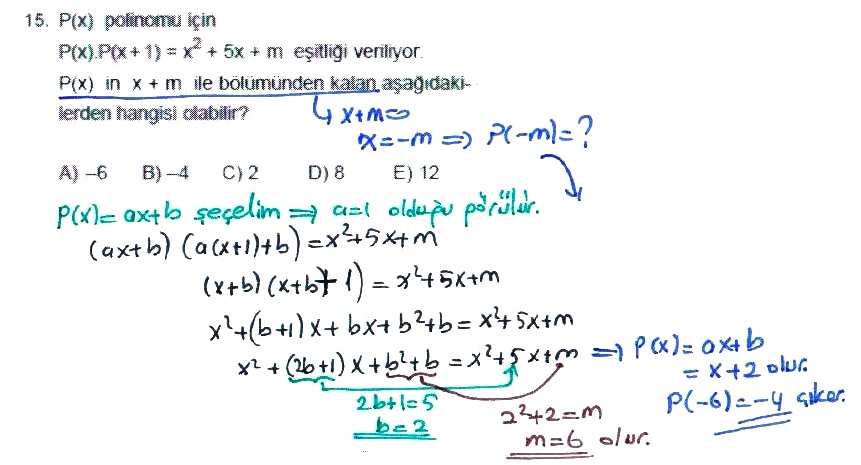 15. P(x) polinomu için
P(x).P(x + 1) = x² + 5x + m eşitliği veriliyor.
P(x) in x + m ile bölümünden kalan aşağıdaki-
lerden hangisi olabilir?
↳ x+m=0
x=-m ⇒ P(-m)=?
A) –6 B) –4 C) 2 D) 8 E) 12
P(x)= ax+b seçelim ⇒ a=1 olduğu görülür.
(ax+b) (a(x+1)+b)=x²+5x+m
(x+b) (x+b+1)=x²+5x+m
x²+(b+1)x+bx+b²+b=x²+5x+m
x²+(2b+1)x+b²+b=x²+5x+m ⇒ P(x)=ax+b
=x+2 olur.
2b+1=5
b=2
2²+2=m
m=6 olur.
P(-6)=-4 çıkar.